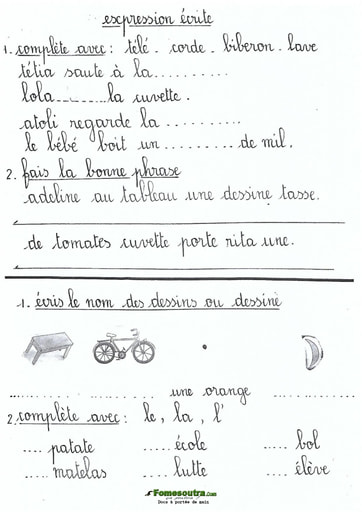 expression écrite
1. complète avec : télé - corde - biberon - lave
tétia saute à la..........
lola..........la cuvette.
atoli regarde la ..........
le bébé boit un ..........de mil.
2. fais la bonne phrase
adeline au tableau une dessine tasse.
de tomates cuvette porte rita une.
1. écris le nom des dessins ou dessine
.......... .......... une orange ..........
2. complète avec : le, la, l'
..... patate ..... école ..... bol
..... matelas ..... lutte ..... élève
Fomesoutra.com
Docs à portée de main